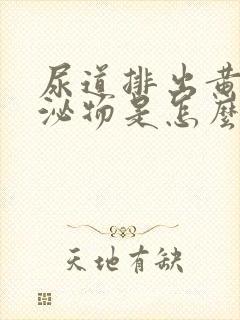 尿道排出黄
泌物是怎麼
天地有缺